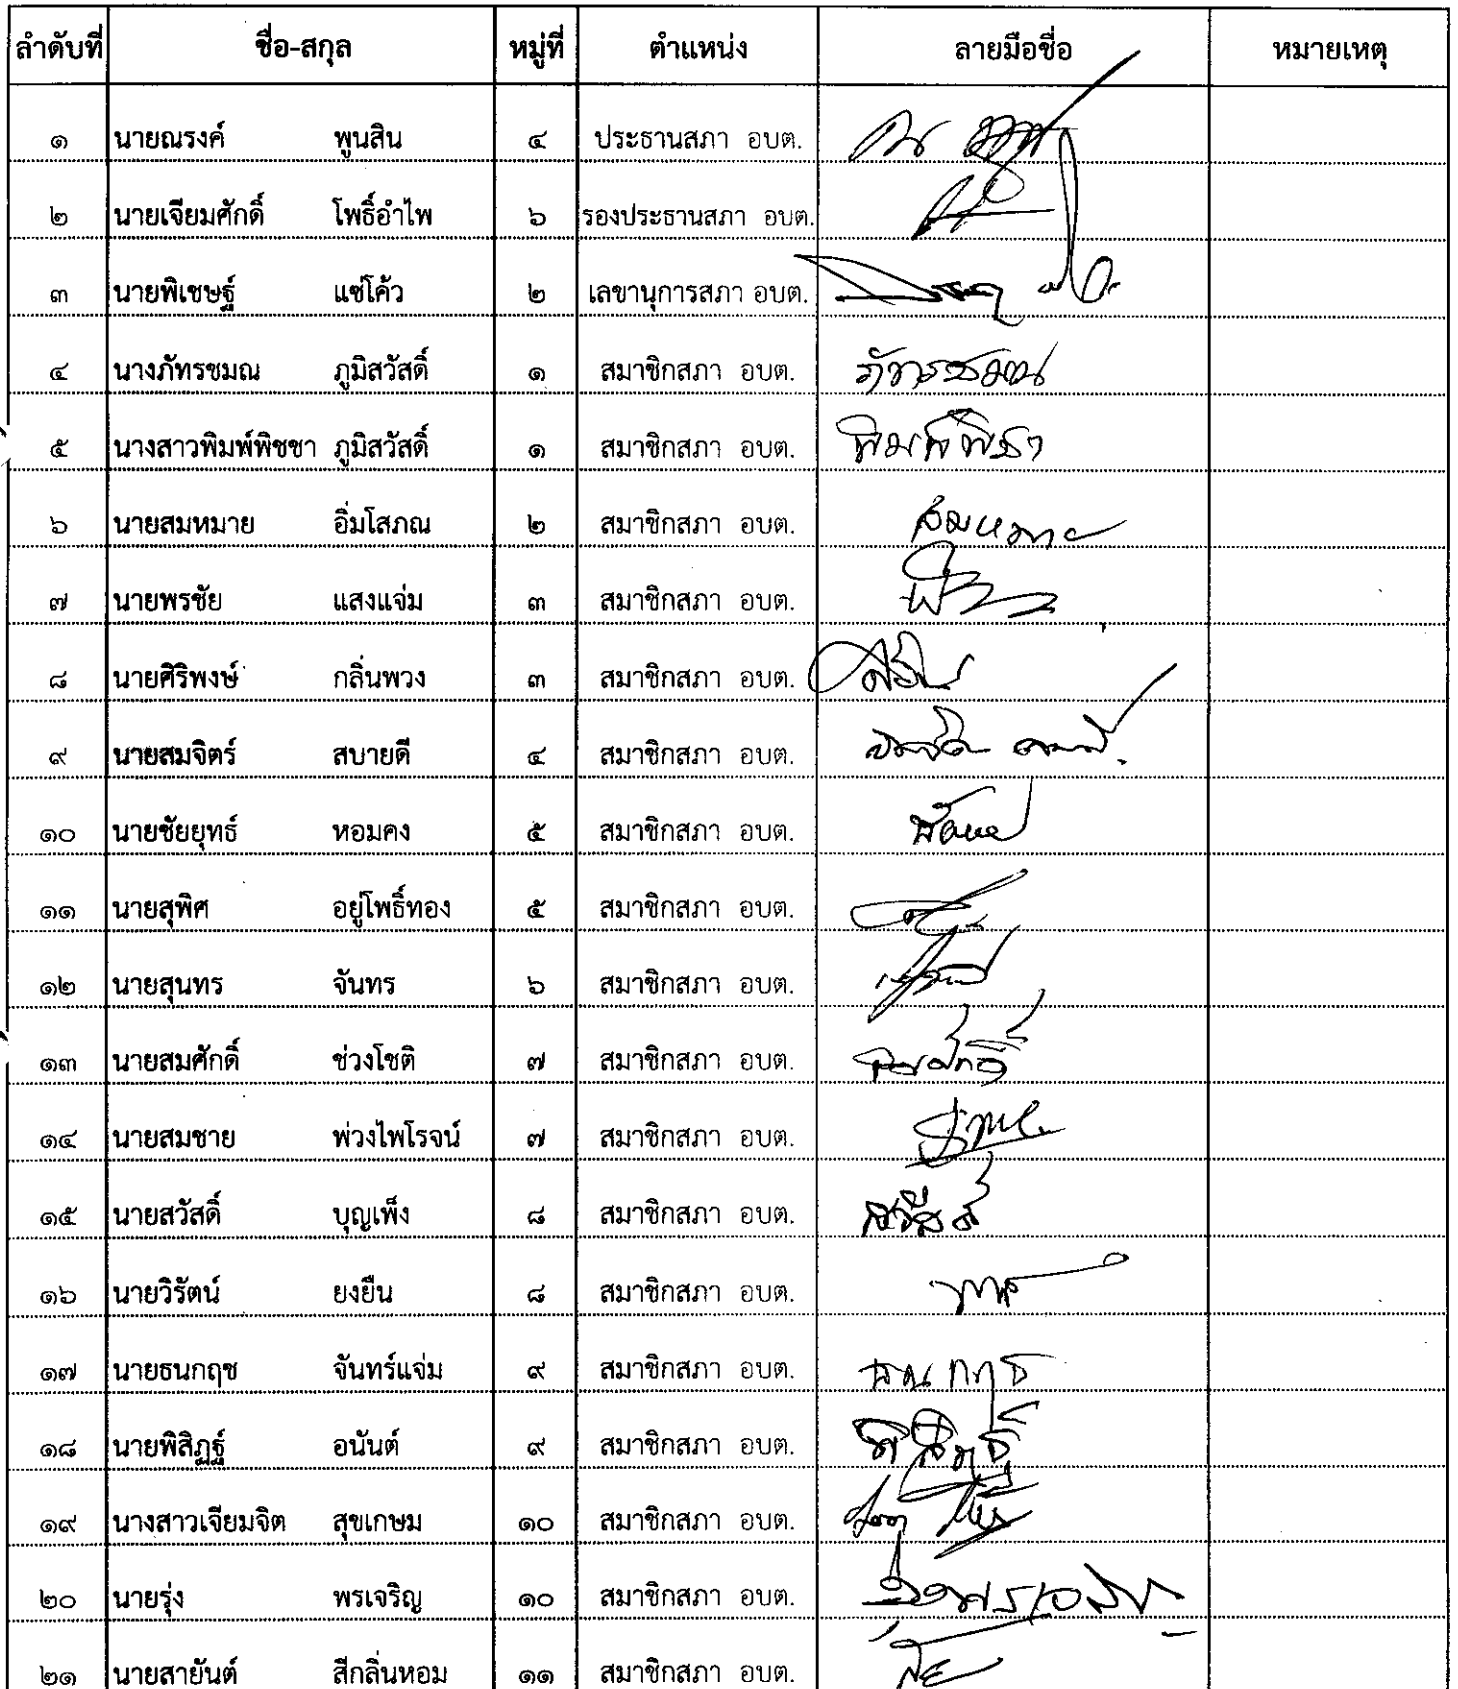 ลำดับที่ ชื่อ-สกุล หมู่ที่ ตำแหน่ง ลายมือชื่อ หมายเหตุ
๑ นายณรงค์ พูนสิน ๔ ประธานสภา อบต.
๒ นายเจียมศักดิ์ โพธิ์อำไพ ๖ รองประธานสภา อบต.
๓ นายพิเชษฐ์ แซ่โค้ว ๒ เลขานุการสภา อบต.
๔ นางภัทรชมณ ภูมิสวัสดิ์ ๑ สมาชิกสภา อบต. ภัทรชมณ
๕ นางสาวพิมพ์พิชชา ภูมิสวัสดิ์ ๑ สมาชิกสภา อบต.
๖ นายสมหมาย อิ่มโสภณ ๒ สมาชิกสภา อบต. สมหมาย
๗ นายพรชัย แสงแจ่ม ๓ สมาชิกสภา อบต.
๘ นายศิริพงษ์ กลิ่นพวง ๓ สมาชิกสภา อบต.
๙ นายสมจิตร์ สบายดี ๔ สมาชิกสภา อบต.
๑๐ นายชัยยุทธ์ หอมคง ๕ สมาชิกสภา อบต.
๑๑ นายสุพิศ อยู่โพธิ์ทอง ๕ สมาชิกสภา อบต.
๑๒ นายสุนทร จันทร ๖ สมาชิกสภา อบต.
๑๓ นายสมศักดิ์ ช่วงโชติ ๗ สมาชิกสภา อบต. สมศักดิ์
๑๔ นายสมชาย พ่วงไพโรจน์ ๗ สมาชิกสภา อบต.
๑๕ นายสวัสดิ์ บุญเพ็ง ๘ สมาชิกสภา อบต.
๑๖ นายวิรัตน์ ยงยืน ๘ สมาชิกสภา อบต.
๑๗ นายธนกฤช จันทร์แจ่ม ๙ สมาชิกสภา อบต.
๑๘ นายพิสิฏฐ์ อนันต์ ๙ สมาชิกสภา อบต.
๑๙ นางสาวเจียมจิต สุขเกษม ๑๐ สมาชิกสภา อบต.
๒๐ นายรุ่ง พรเจริญ ๑๐ สมาชิกสภา อบต.
๒๑ นายสายันต์ สีกลิ่นหอม ๑๑ สมาชิกสภา อบต.